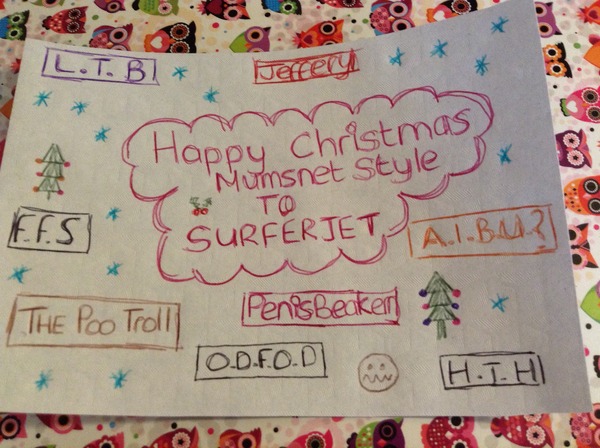 L.T.B
Jeffery
Happy Christmas
Mumsnet Style
TO
SURFERJET
F.F.S
A.I.B.U.?
THE Poo Troll
PenisBeaker
O.D.F.O.D
H.I.H